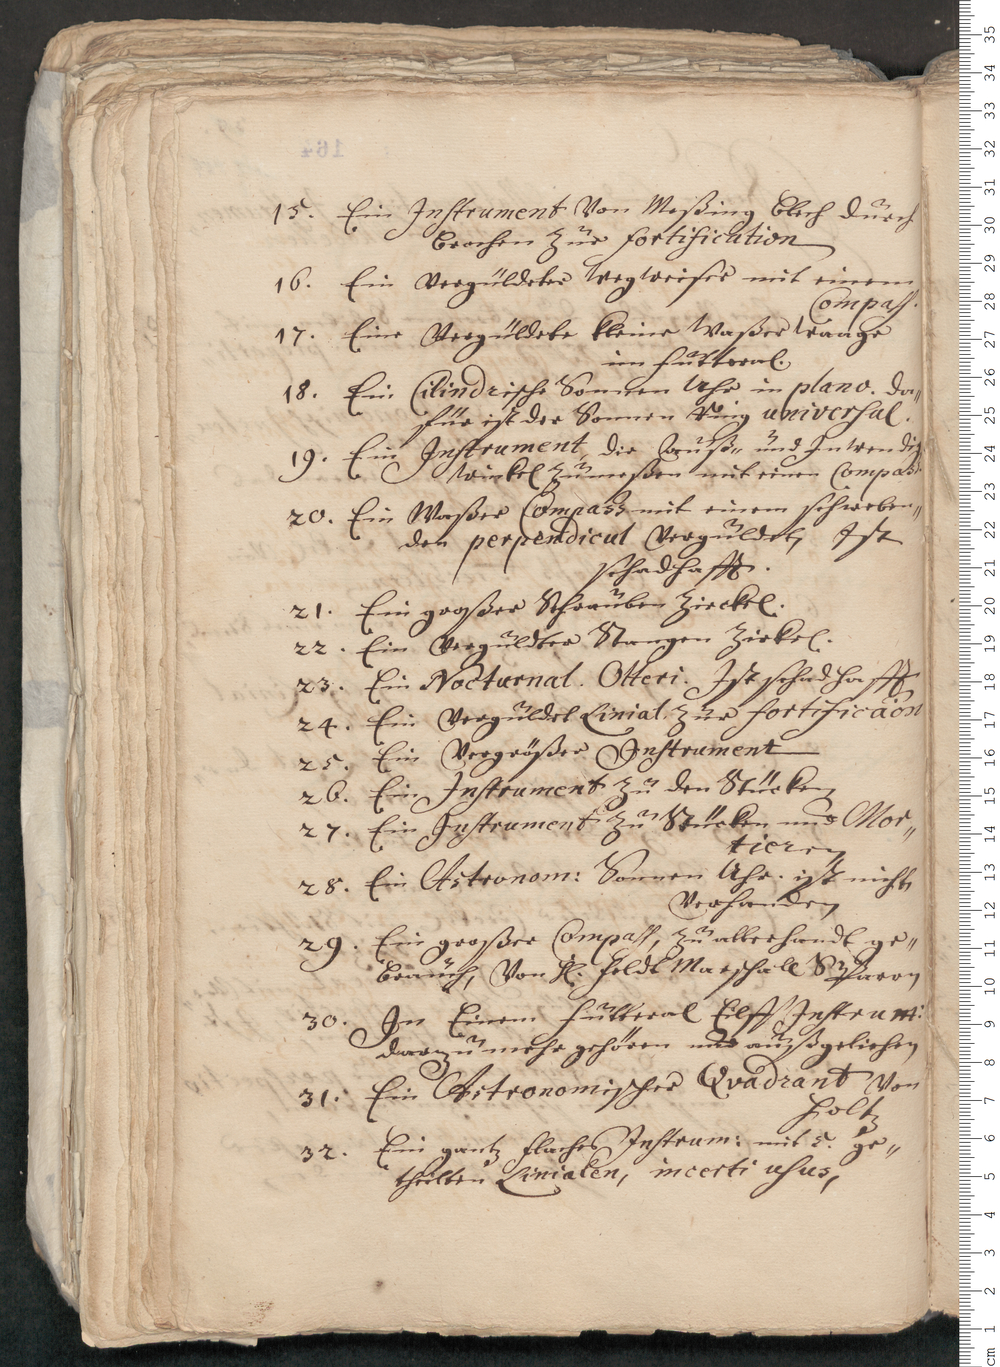 15. Ein Instrument von Meßing blech durch
brochen zur fortification
16. Ein vergüldeter Wegweiser mit einem
Compass.
17. Eine vergüldete kleine Waßer waage
im futteral.
18. Ein Cilindrische Sonnen Uhr in plano. da„
für ist der Sonnen Ring universal.
19. Ein Instrument, die auß„ und Inwendig
winckel zumeßen mit einen Compass
20. Ein Waßer Compass mit einem schweben„
den perpendicul vergüldet, Ist
schadhafft.
21. Ein großer Schrauben Zirckel.
22. Ein vergüldter Stangen Zirkel.
23. Ein Nocturnal. Otteri. Ist schadhafft
24. Ein vergüldet Linial. zur fortificaon
25. Ein vergrößer Instrument
26. Ein Instrument zu den Stücken
27. Ein Instrument zu Stücken und Mor„
tieren
28. Ein Astronom: Sonnen Uhr. ist nicht
verhanden
29. Ein großer Compass, zu allerhandt ge„
brauch, von H. Feldt Marschall Sparrn
30. In Einem futteral Eilff Instrum:
darzu mehr gehören und außgeliehen
31. Ein Astronomischer Quadrant von
Holtz
32. Ein gantz flaches Instrum: mit 5. ge„
theilten Linialen, incerti usus,
164
35
34
33
32
31
30
29
28
27
26
25
24
23
22
21
20
19
18
17
16
15
14
13
12
11
10
9
8
7
6
5
4
3
2
cm 1